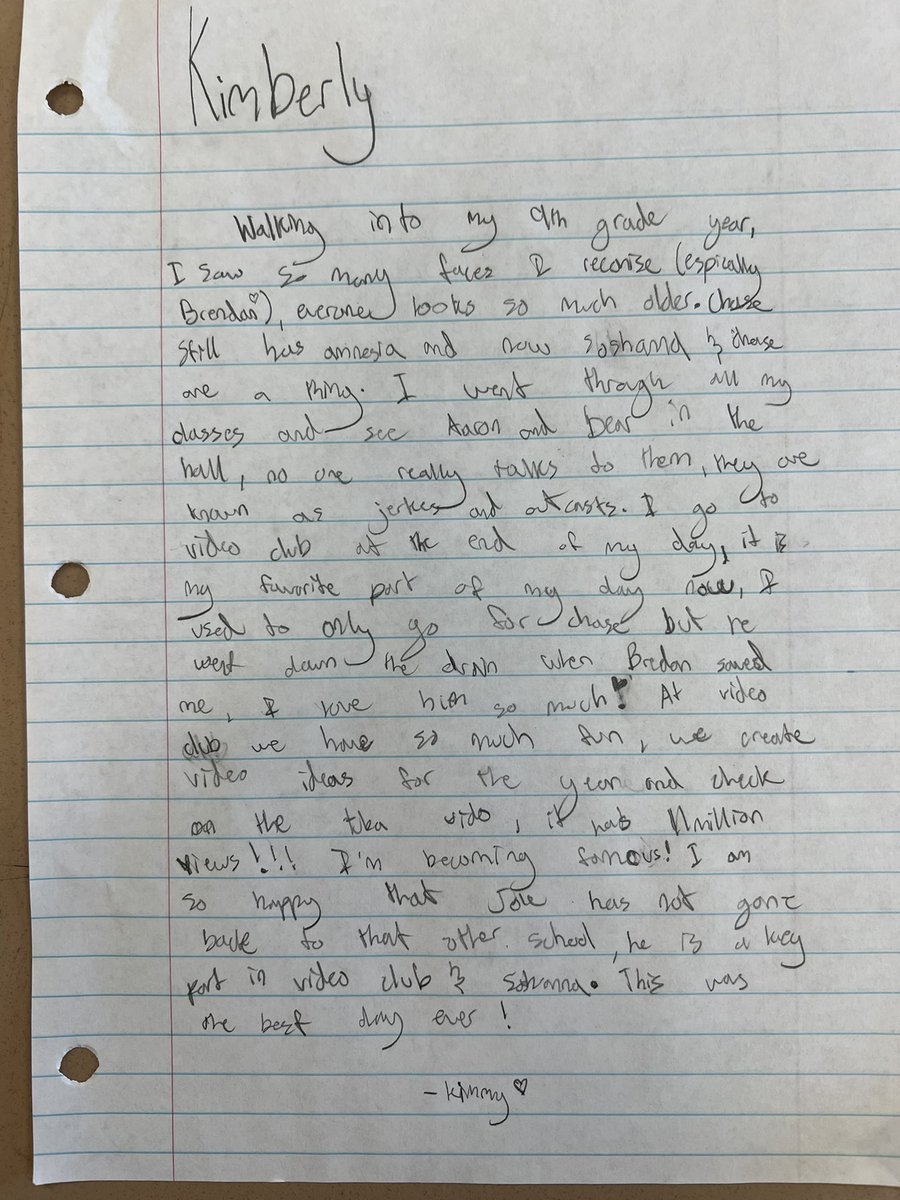 Kimberly
Walking into my 9th grade year,
I saw so many faces I reconise (espically
Brendan♡), everyone looks so much older. Chase
still has amnesia and now soshanna & chase
are a thing. I went through all my
classes and see Aaron and bear in the
hall, no one really talks to them, they are
known as jerkes and outcasts. I go to
video club at the end of my day, it is
my favorite part of my day now, I
used to only go for chase but he
went down the drain when Bredan saved
me, I love him so much! At video
club we have so much fun, we create
video ideas for the year and check
on the tuba vido, it has 11million
views!!! I'm becoming famous! I am
so happy that Joel has not gone
back to that other school, he is a key
part in video club & Sohanna. This was
the best day ever!
- Kimmy ♡